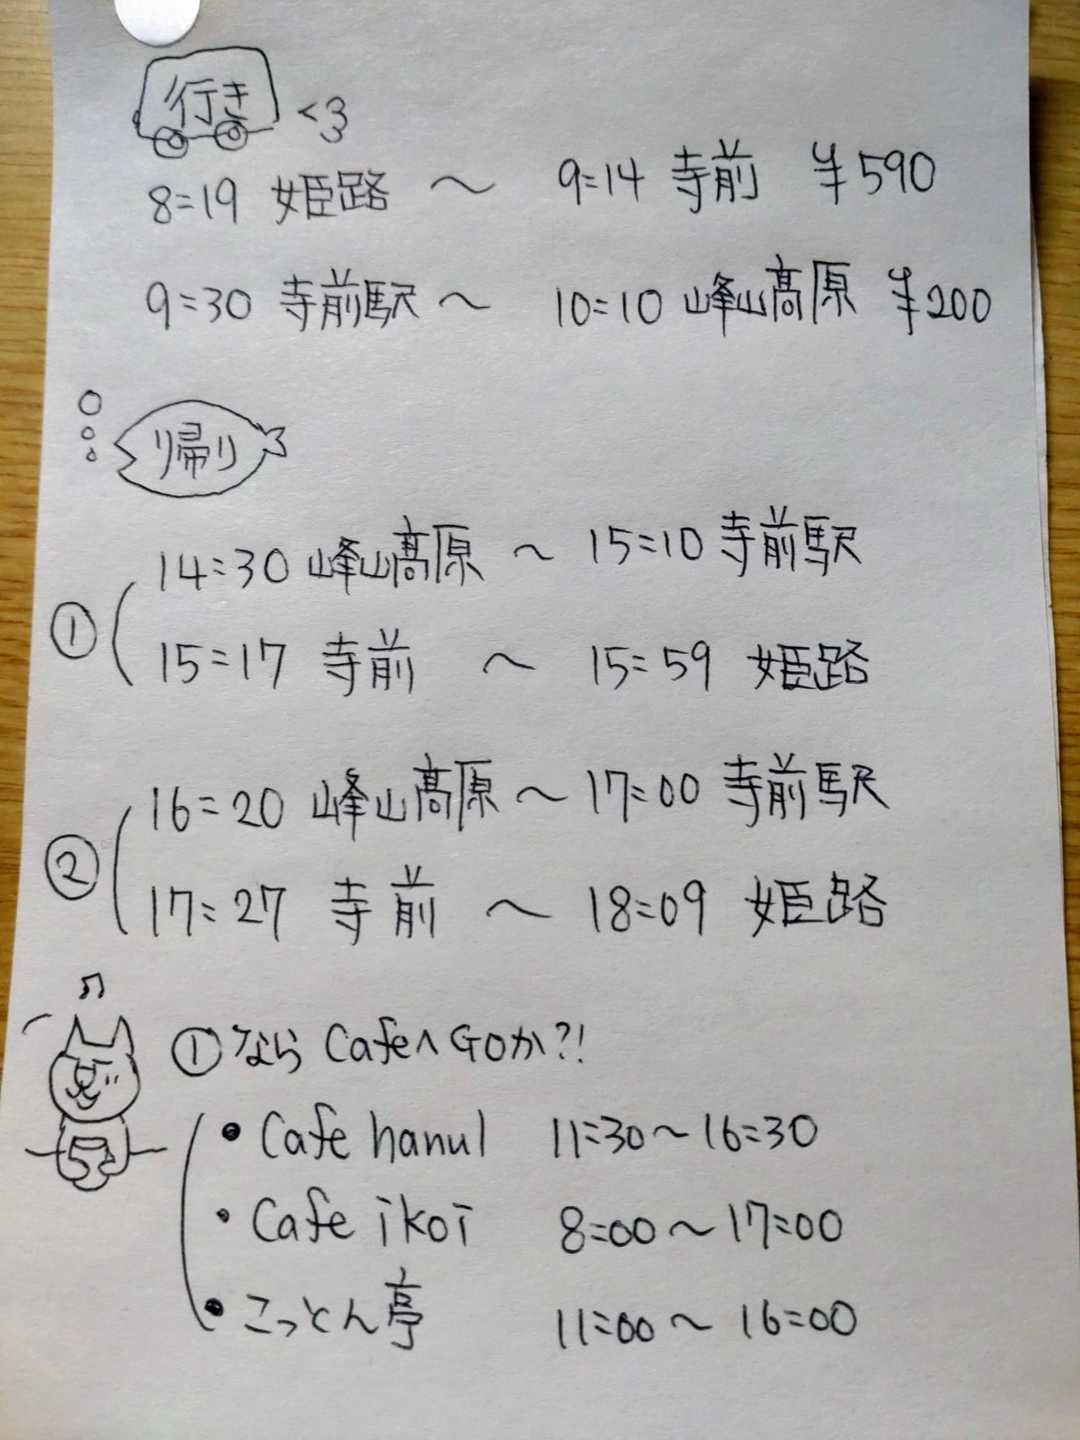 行き
8:19 姫路 〜 9:14 寺前 ¥590
9:30 寺前駅 〜 10:10 峰山髙原 ¥200
帰り
① 14:30 峰山髙原 〜 15:10 寺前駅
15:17 寺前 〜 15:59 姫路
② 16:20 峰山髙原 〜 17:00 寺前駅
17:27 寺前 〜 18:09 姫路
①なら CafeへGOか?!
• Cafe hanul 11:30〜16:30
• Cafe ikoi 8:00〜17:00
• こっとん亭 11:00〜16:00